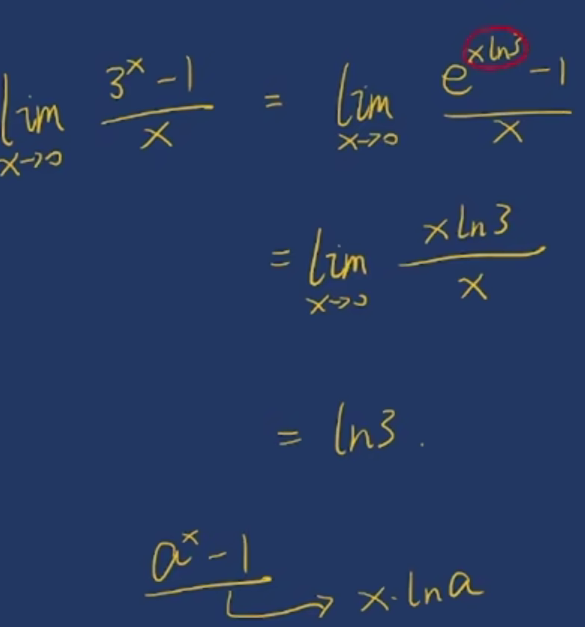 lim x→0 (3^x - 1)/x = lim x→0 (e^(x ln3) - 1)/x
= lim x→0 (x ln3)/x
= ln3.
a^x - 1 → x·lna